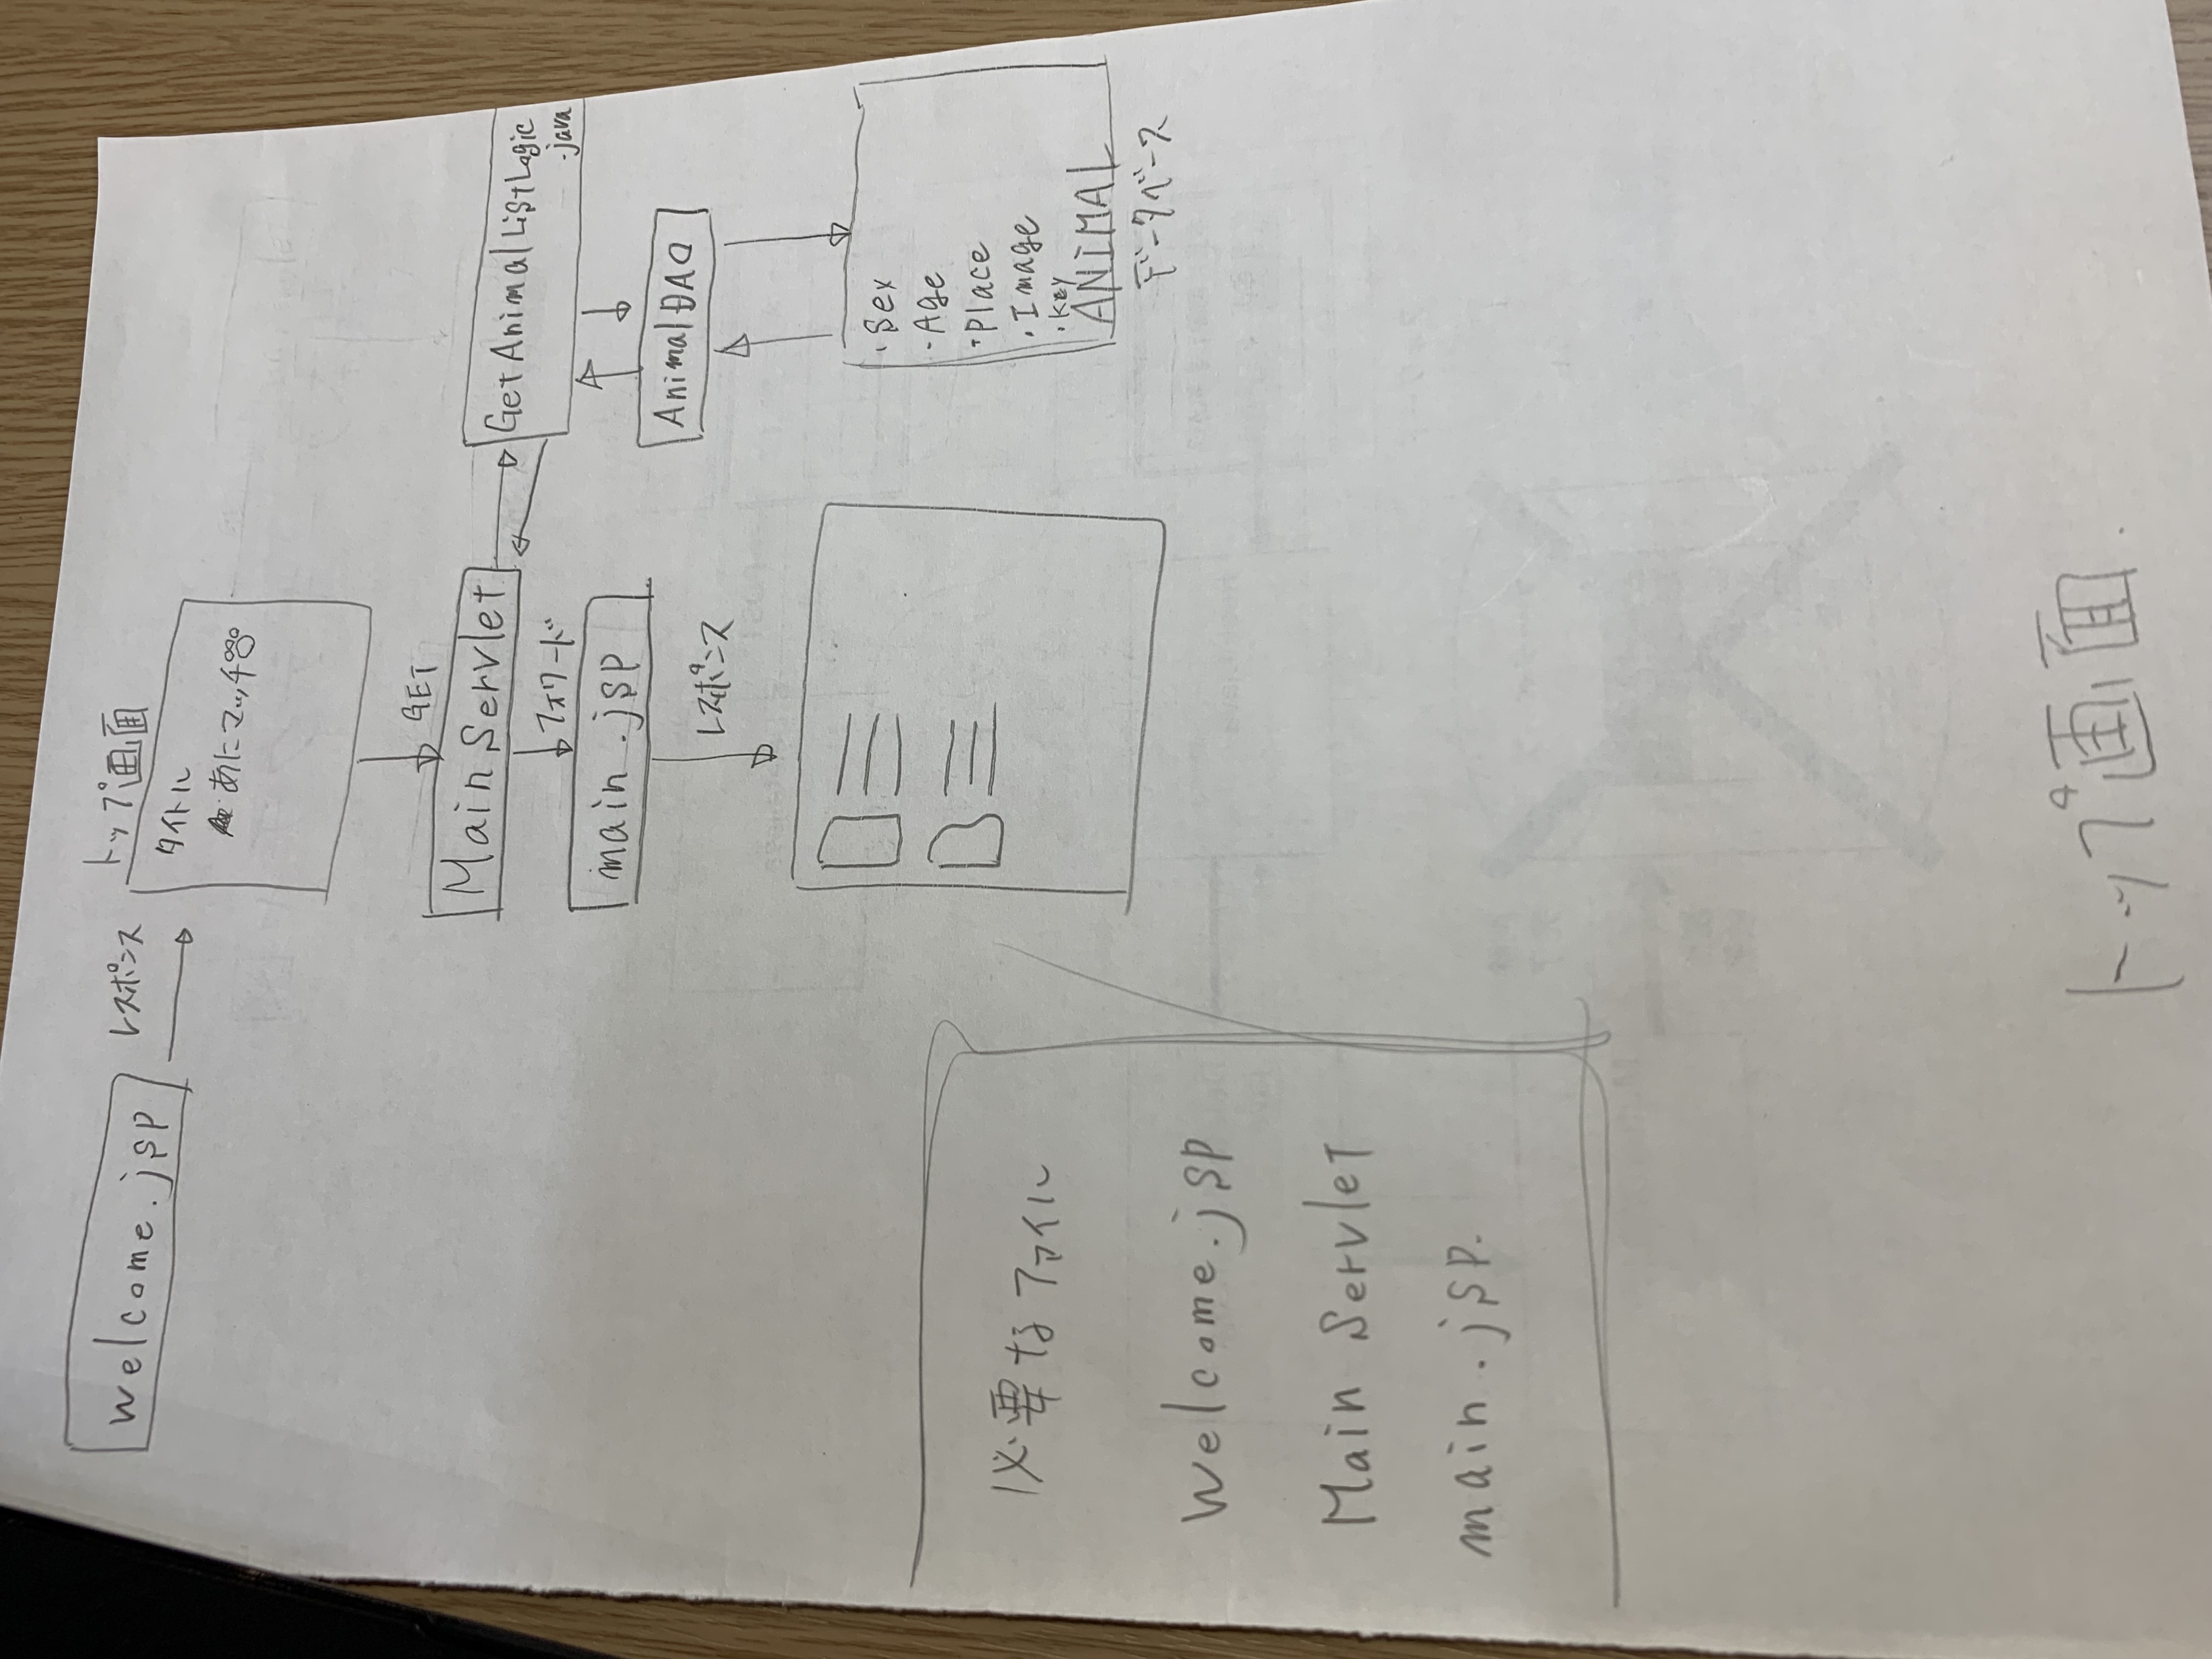 welcome.jsp
レスポンス
トップ画面
タイトル
あにマッチ
GET
Main Servlet
GetAnimalListLogic
.java
フォワード
main.jsp
AnimalDAO
レスポンス
・Sex
・Age
・Place
・Image
・key
ANIMAL
データベース
必要なファイル
Welcome.jsp
Main Servlet
main.jsp.
トップ画面.